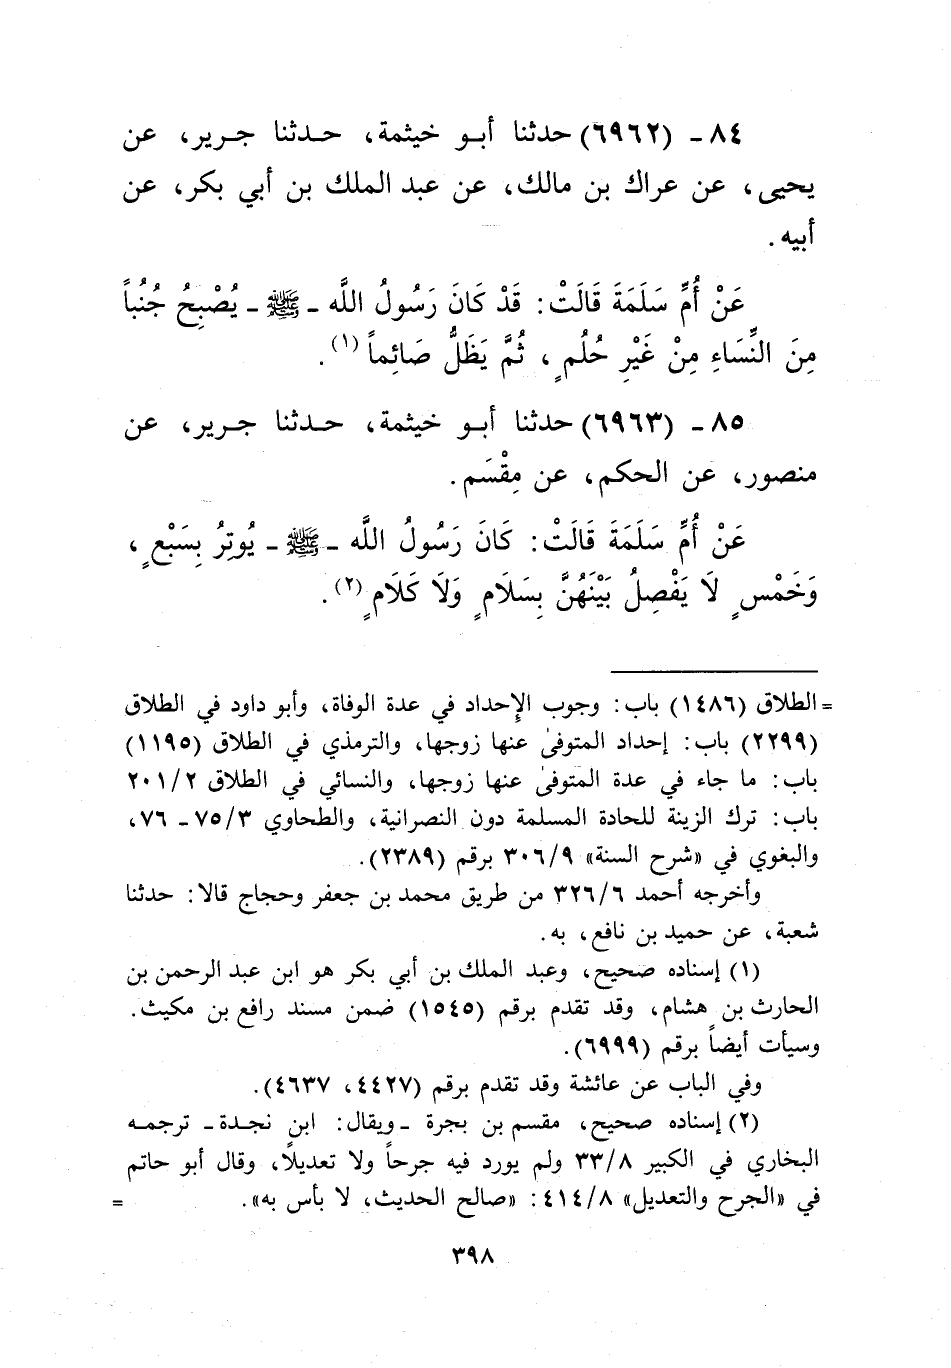 ٨٤ - (٦٩٦٢) حدثنا أبو خيثمة، حدثنا جرير، عن
يحيى، عن عراك بن مالك، عن عبد الملك بن أبي بكر، عن
أبيه.
عَنْ أُمِّ سَلَمَةَ قَالَتْ: قَدْ كَانَ رَسُولُ اللَّه - ﷺ - يُصْبِحُ جُنُباً
مِنَ النِّسَاءِ مِنْ غَيْرِ حُلُمٍ، ثُمَّ يَظَلُّ صَائِماً (١).
٨٥ - (٦٩٦٣) حدثنا أبو خيثمة، حدثنا جرير، عن
منصور، عن الحكم، عن مِقْسَم.
عَنْ أُمِّ سَلَمَةَ قَالَتْ: كَانَ رَسُولُ اللَّه - ﷺ - يُوتِرُ بِسَبْعٍ،
وَخَمْسٍ لَا يَفْصِلُ بَيْنَهُنَّ بِسَلَامٍ وَلَا كَلَامٍ (٢).
= الطلاق (١٤٨٦) باب: وجوب الإحداد في عدة الوفاة، وأبو داود في الطلاق
(٢٢٩٩) باب: إحداد المتوفىٰ عنها زوجها، والترمذي في الطلاق (١١٩٥)
باب: ما جاء في عدة المتوفىٰ عنها زوجها، والنسائي في الطلاق ٢٠١/٢
باب: ترك الزينة للحادة المسلمة دون النصرانية، والطحاوي ٧٥/٣ - ٧٦،
والبغوي في «شرح السنة» ٣٠٦/٩ برقم (٢٣٨٩).
وأخرجه أحمد ٣٢٦/٦ من طريق محمد بن جعفر وحجاج قالا: حدثنا
شعبة، عن حميد بن نافع، به.
(١) إسناده صحيح، وعبد الملك بن أبي بكر هو ابن عبد الرحمن بن
الحارث بن هشام، وقد تقدم برقم (١٥٤٥) ضمن مسند رافع بن مكيث.
وسيأت أيضاً برقم (٦٩٩٩).
وفي الباب عن عائشة وقد تقدم برقم (٤٤٢٧، ٤٦٣٧).
(٢) إسناده صحيح، مقسم بن بجرة - ويقال: ابن نجدة - ترجمه
البخاري في الكبير ٣٣/٨ ولم يورد فيه جرحاً ولا تعديلاً، وقال أبو حاتم
في «الجرح والتعديل» ٤١٤/٨: «صالح الحديث، لا بأس به». =
٣٩٨